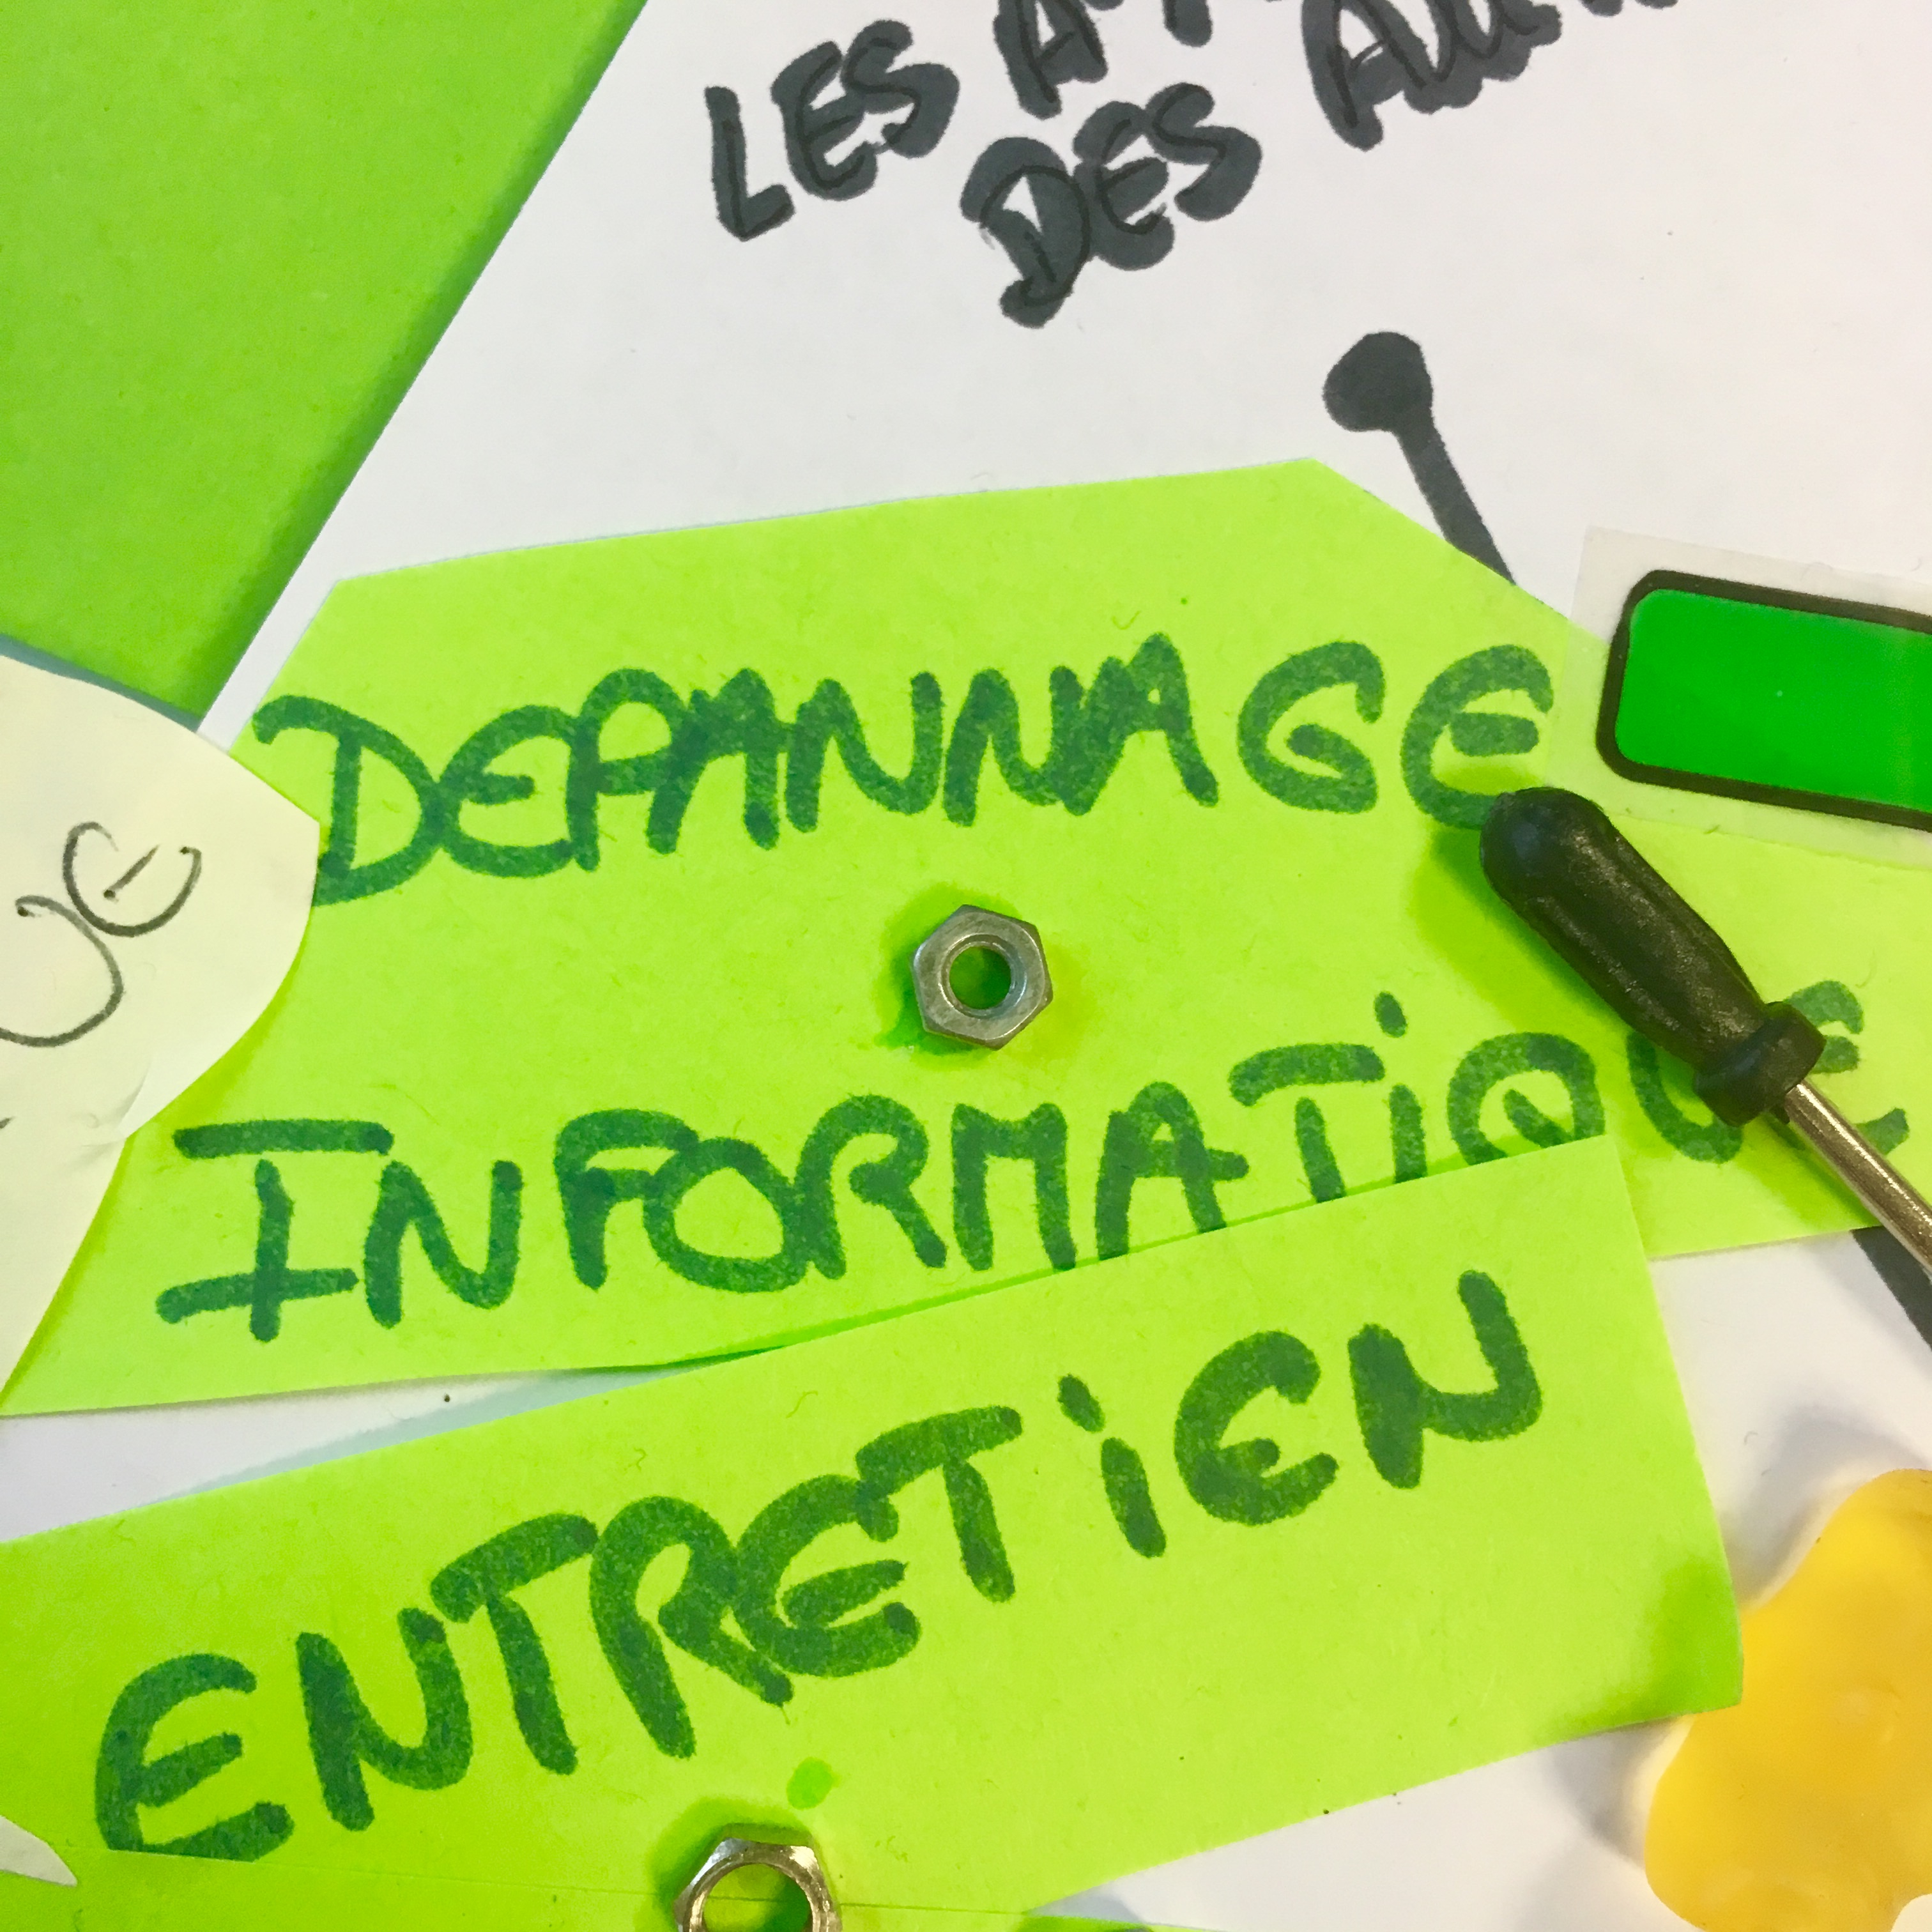 LES
DES
DEPANNAGE
INFORMATIQUE
ENTRETIEN